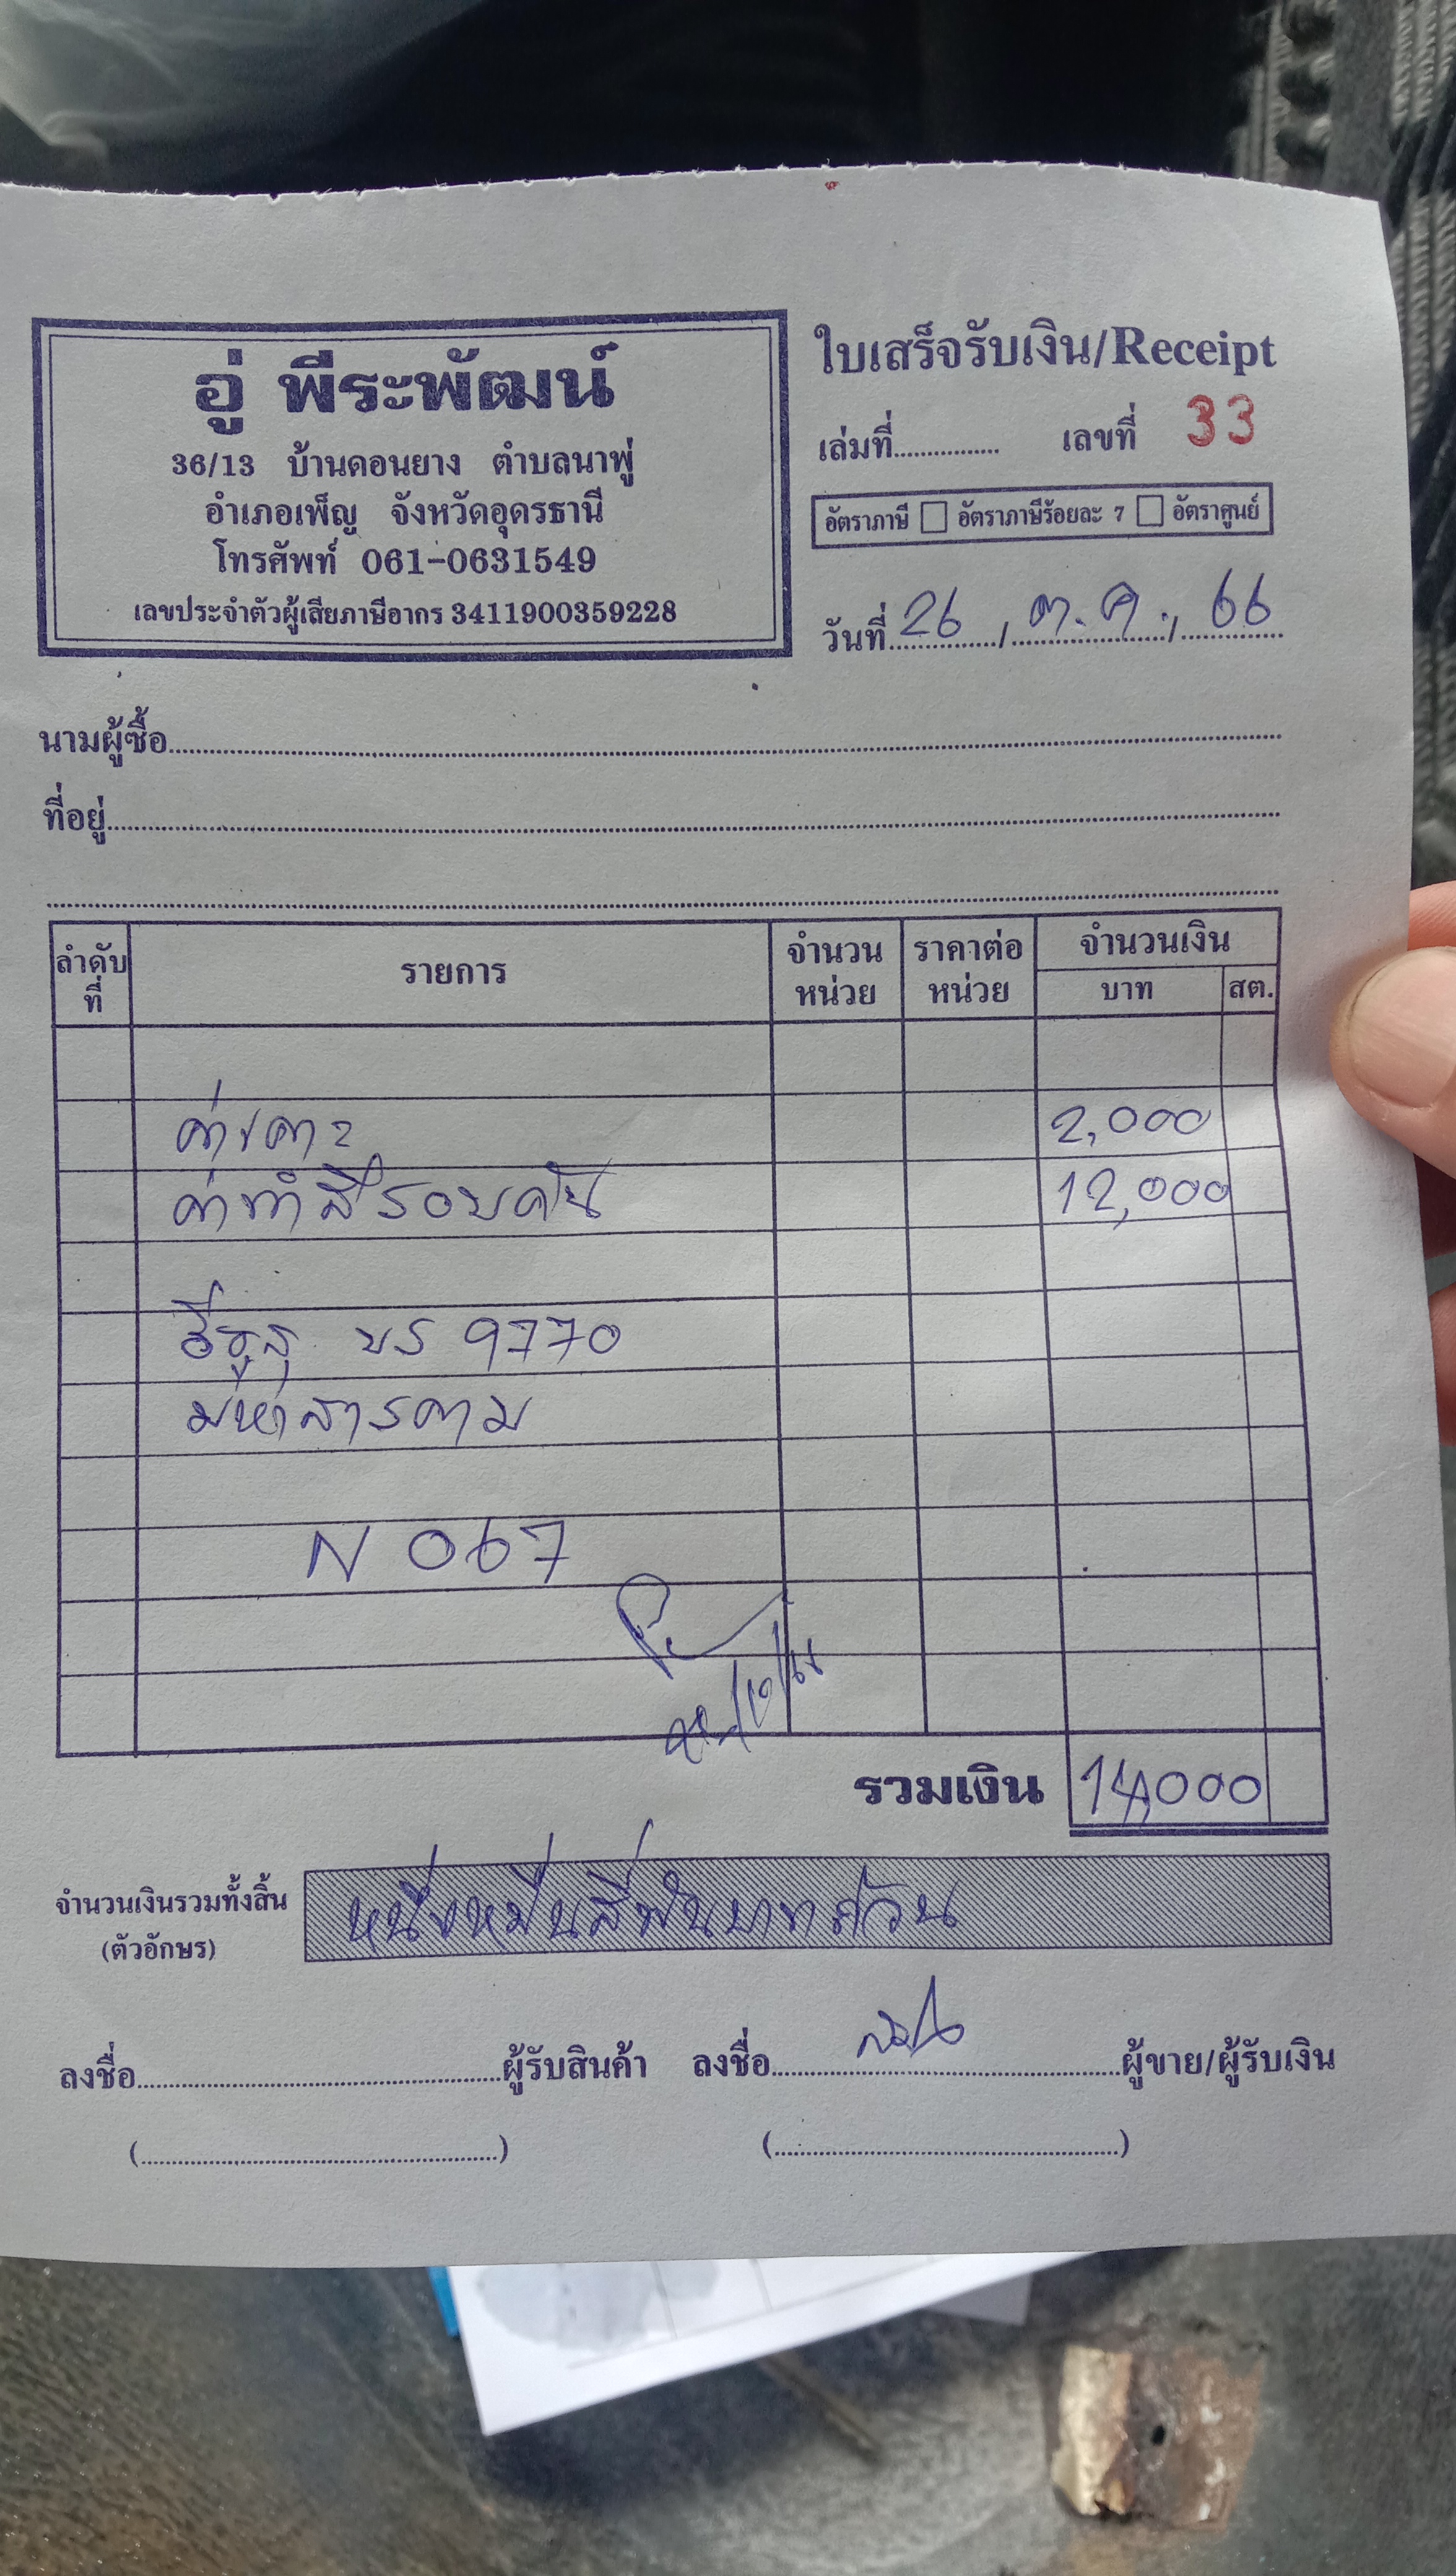 อู่ พีระพัฒน์
36/13 บ้านดอนยาง ตำบลนาพู่
อำเภอเพ็ญ จังหวัดอุดรธานี
โทรศัพท์ 061-0631549
เลขประจำตัวผู้เสียภาษีอากร 3411900359228
ใบเสร็จรับเงิน/Receipt
เล่มที่................ เลขที่ 33
อัตราภาษี อัตราภาษีร้อยละ 7 อัตราศูนย์
วันที่ 26 / ต.ค. / 66
นามผู้ซื้อ
ที่อยู่
ลำดับที่ รายการ จำนวนหน่วย ราคาต่อหน่วย จำนวนเงิน
บาท สต.
ค่าเคาะ 2,000
ค่าทำสีรอบคัน 12,000
อีซูสุ บร 9770
มหาสารคาม
N 067
รวมเงิน 14,000
จำนวนเงินรวมทั้งสิ้น (ตัวอักษร) หนึ่งหมื่นสี่พันบาทถ้วน
ลงชื่อ ผู้รับสินค้า ลงชื่อ ผู้ขาย/ผู้รับเงิน